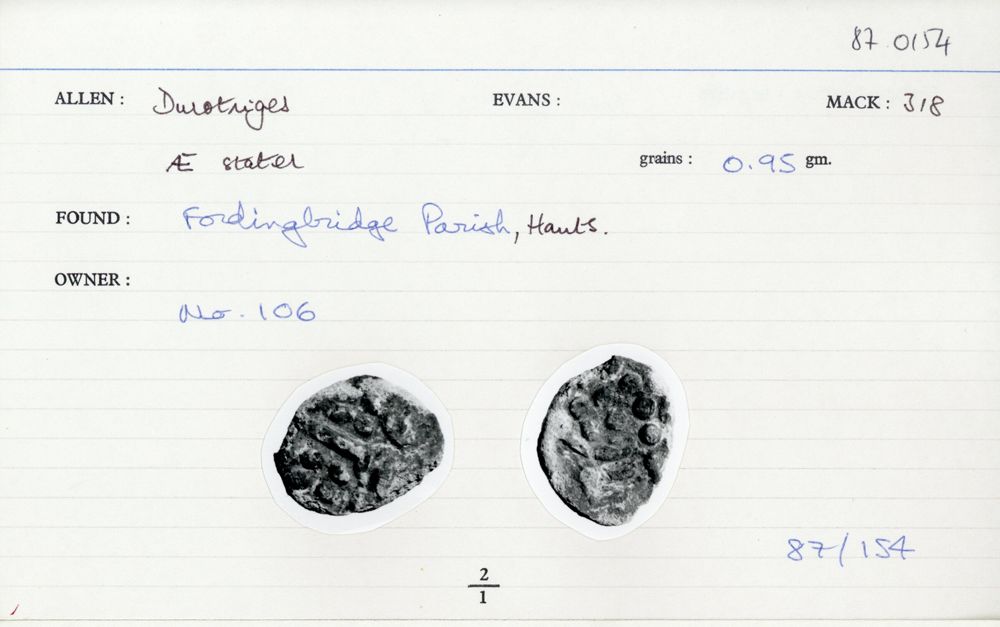 87.0154
ALLEN : Durotriges EVANS : MACK : 318
Æ stater grains : 0.95 gm.
FOUND : Fordingbridge Parish, Hants.
OWNER :
No. 106
87/154
2
1